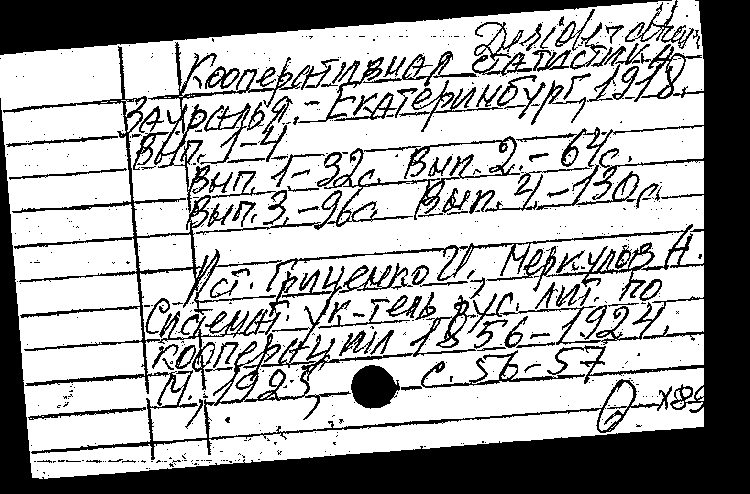 Desiderata
Кооперативная статистика
Зауралья. - Екатеринбург, 1918.
Вып. 1-4
Вып. 1 - 32с. Вып. 2. - 64с.
Вып. 3. - 96с. Вып. 4. - 130с.
Ист. Гриценко И., Меркулов А.
Системат. ук-тель рус. лит. по
кооперации 1856-1924.
М., 1925, с. 56-57